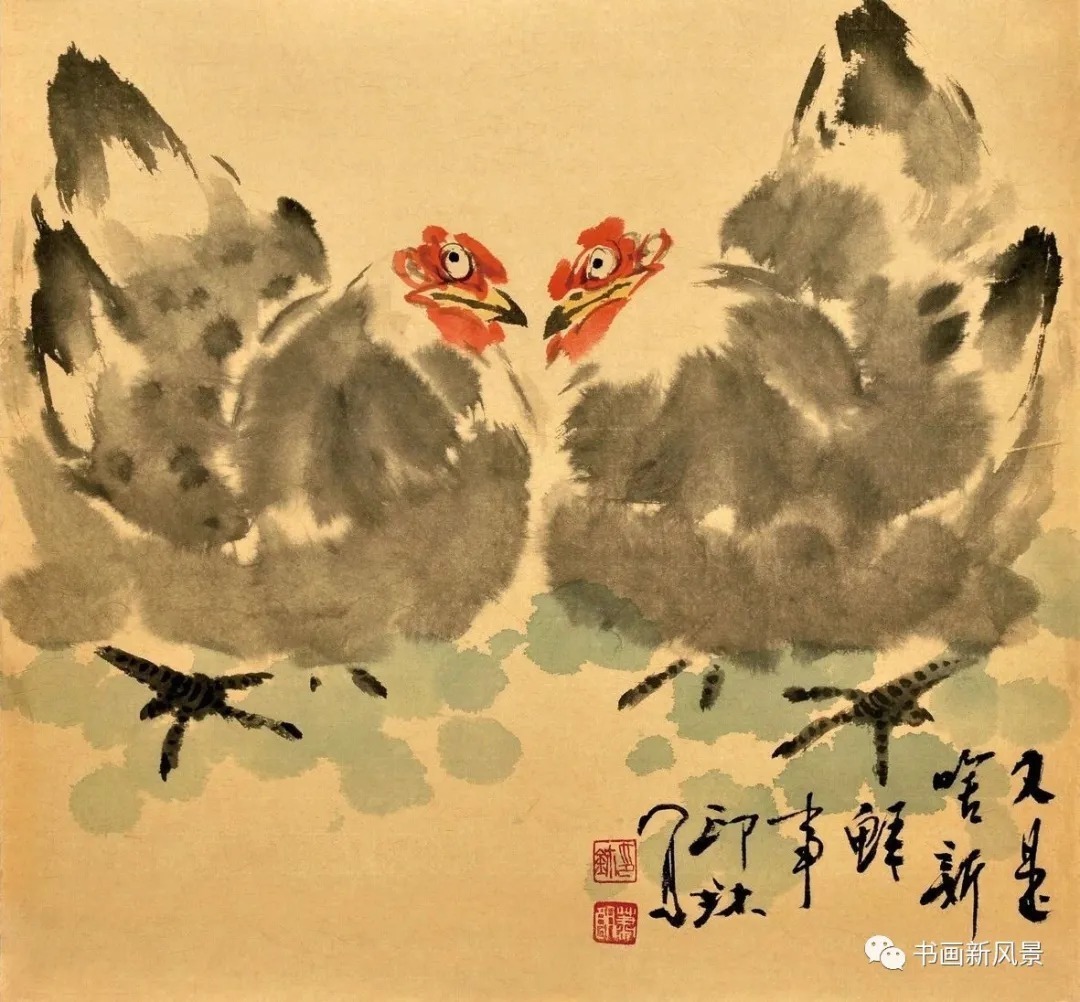 又是
啥新
鲜
事
印
写
书画新风景